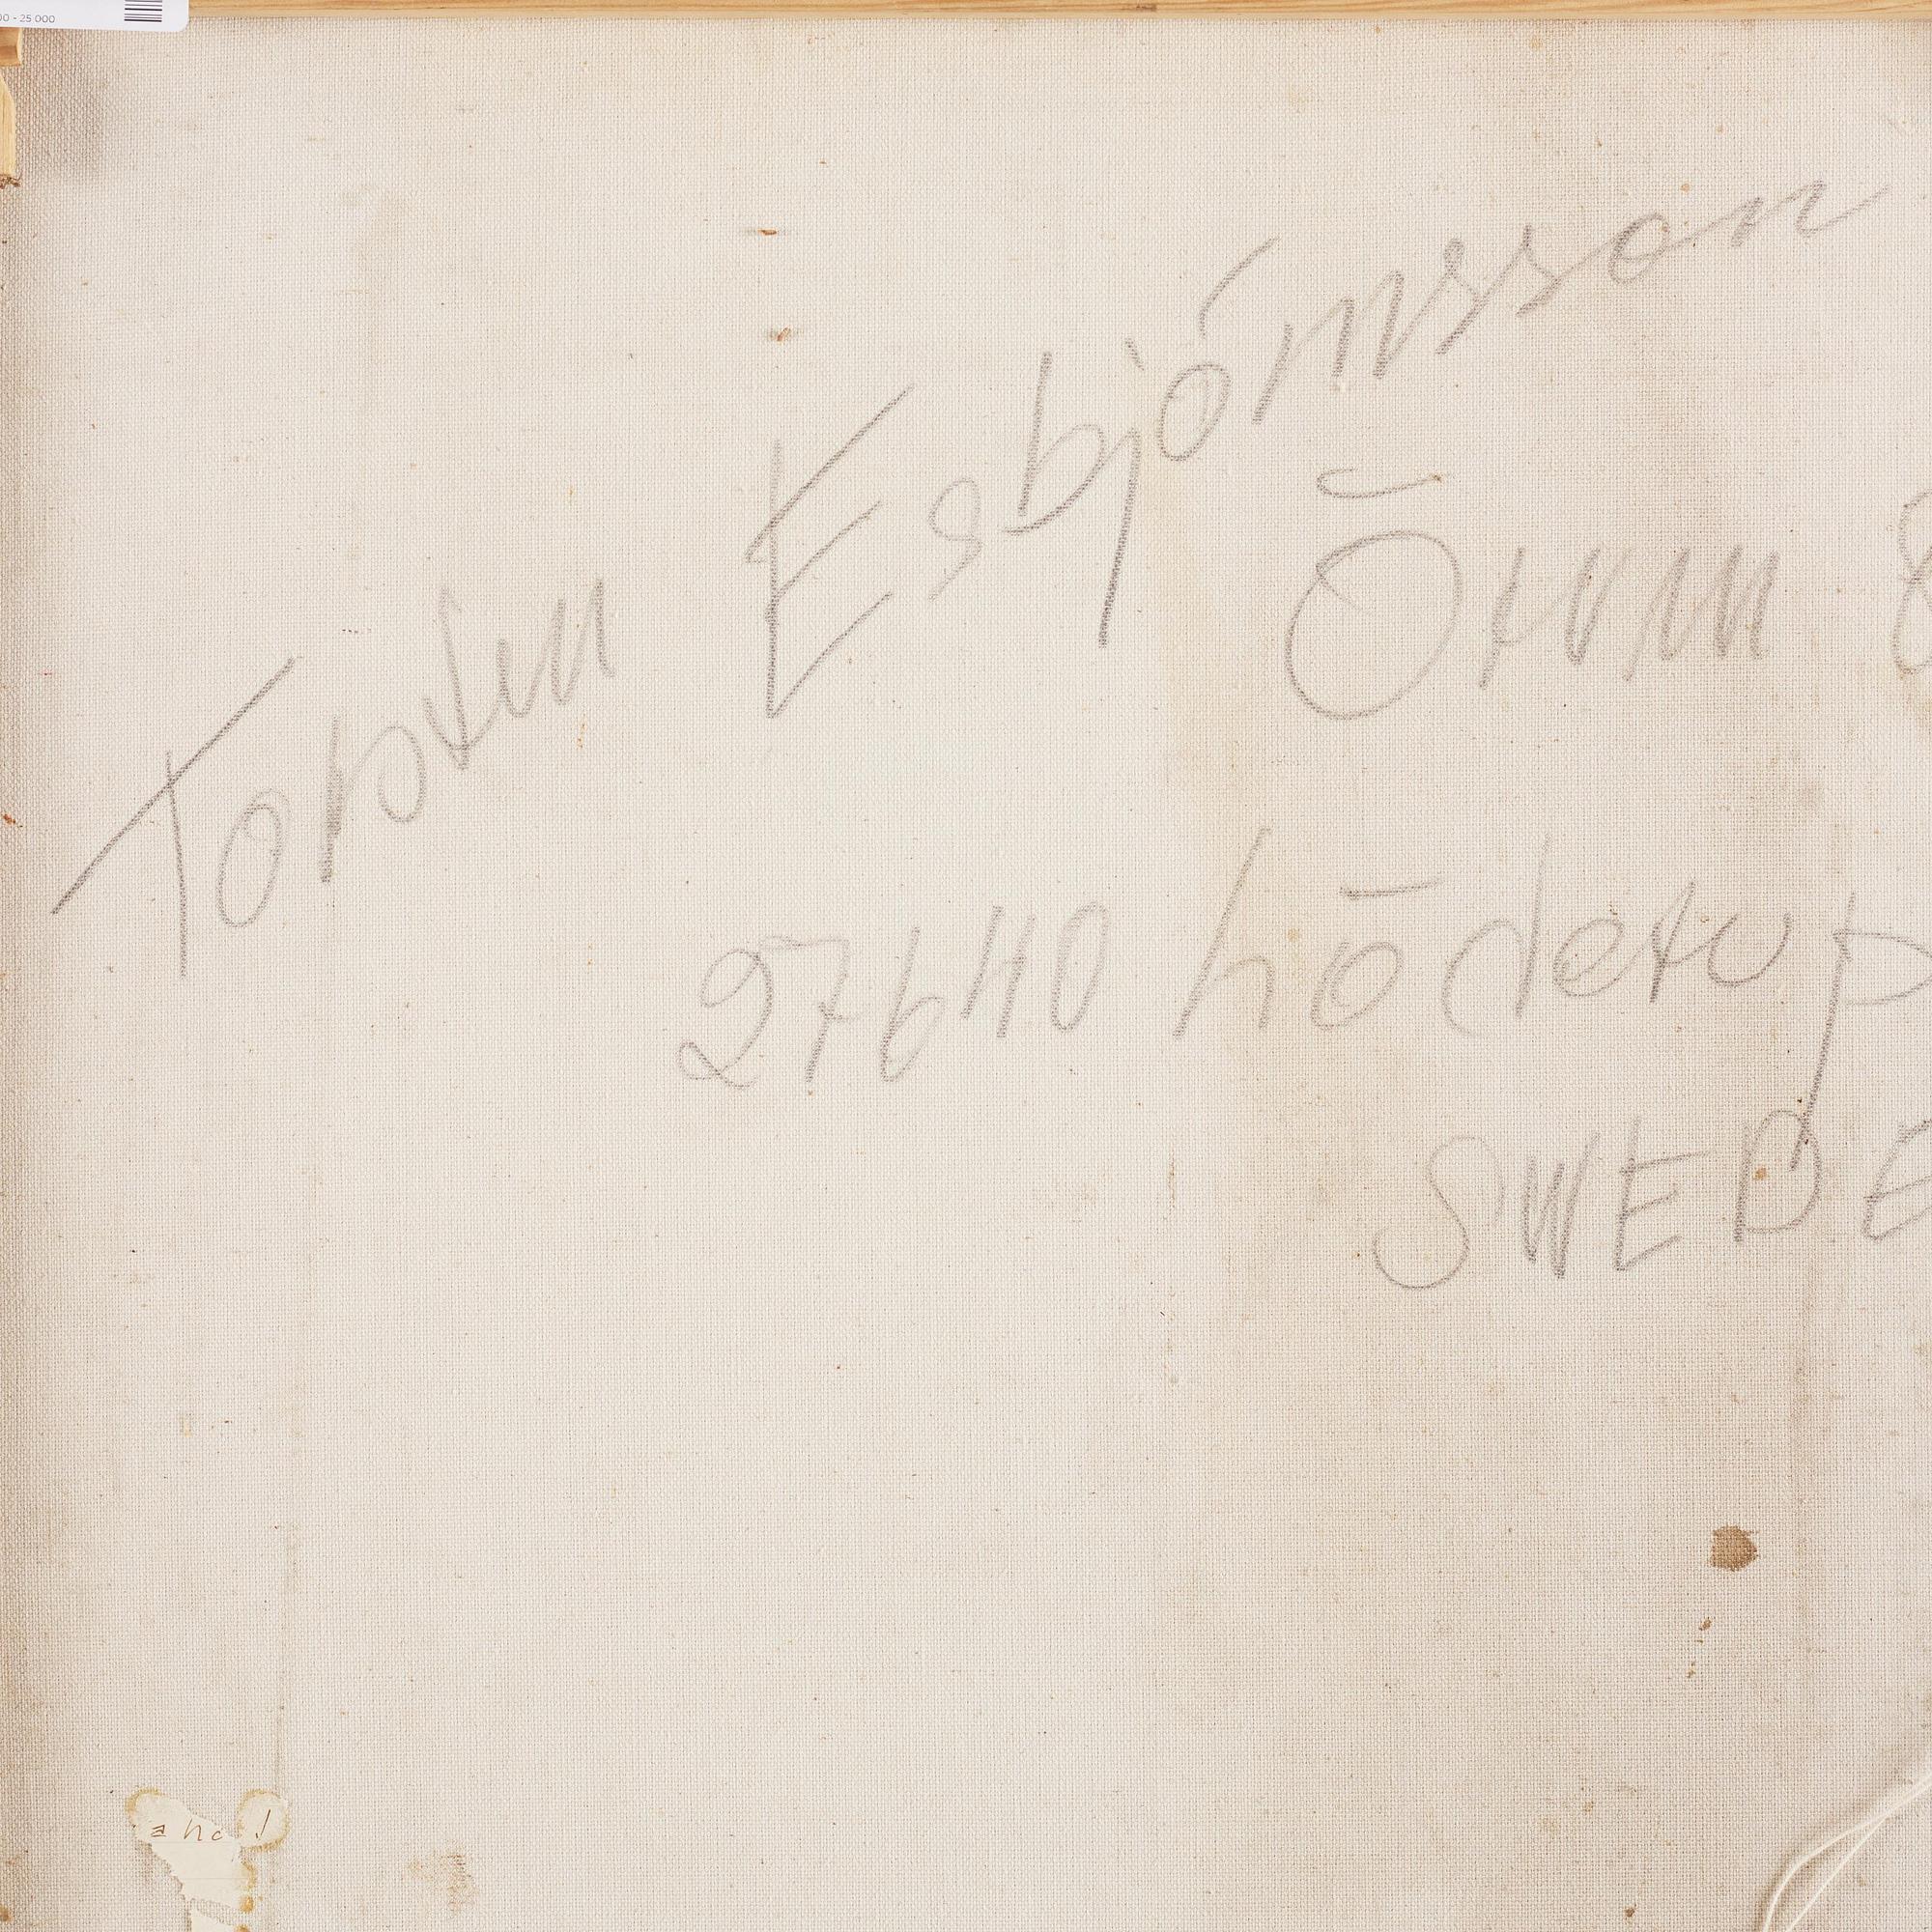 00 - 25 000
Torsten Esbjörnsson
Örum 8
27640 Löderup
SWEDE